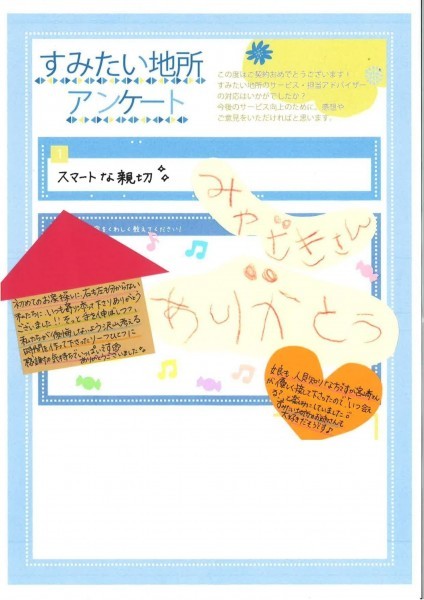 すみたい地所
アンケート
この度はご契約おめでとうございます！
すみたい地所のサービス・担当アドバイザー
の対応はいかがでしたか？
今後のサービス向上のために、感想や
ご意見をいただければと思います。
1
スマートな親切
をくわしく教えてください！
みやざきさん
ありがとう
初めてのお家探しに、右も左も分からない
私たちに、いつも寄り添って下さりありがとう
ございました!!
私たちが後悔しないよう沢山考える
時間を作って下さったり
感謝の気持ちでいっぱいです
ありがとうございました
娘も人見知りな方ですが宮崎さん
が優しく接して下さったので、いつ会え
る?と楽しみにしていました
すみたい地所のお姉さんも
大好きだそうです♪